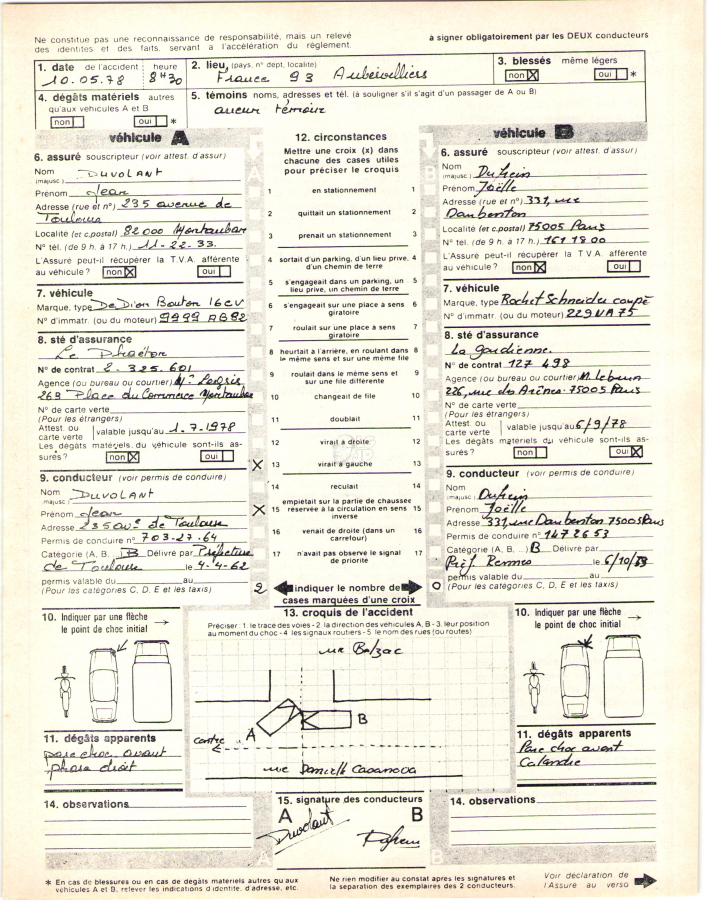 Ne constitue pas une reconnaissance de responsabilité, mais un relevé
des identites et des faits, servant a l'accélération du règlement.
à signer obligatoirement par les DEUX conducteurs
1. date de l'accident heure
10.05.78 8H30
2. lieu, (pays, n° dept, localité)
France 93 Aubervilliers
3. blessés même légers
non X oui *
4. dégâts matériels autres
qu'aux véhicules A et B
non oui *
5. témoins noms, adresses et tél. (à souligner s'il s'agit d'un passager de A ou B)
aucun témoin
véhicule A
6. assuré souscripteur (voir attest. d'assur)
Nom DUVOLANT
(majusc.)
Prénom Jean
Adresse (rue et n°) 235 avenue de
Toulouse
Localité (et c.postal) 82000 Montauban
N° tél. (de 9 h. à 17 h.) 11-22-33.
L'Assure peut-il récupérer la T.V.A. afférente
au véhicule ? non X oui
7. véhicule
Marque, type De Dion Bouton 16CV
N° d'immatr. (ou du moteur) 9999 AB82
8. sté d'assurance
Le Phaéton
N° de contrat 2.325.601
Agence (ou bureau ou courtier)
268 Place du Commerce Montauban
N° de carte verte
(Pour les étrangers)
Attest. ou
carte verte valable jusqu'au 1.7.1978
Les dégâts matériels du véhicule sont-ils as-
surés ? non oui
9. conducteur (voir permis de conduire)
Nom DUVOLANT
(majusc.)
Prénom Jean
Adresse 235 av. de Toulouse
Permis de conduire n° 703-27-64
Catégorie (A, B, B Délivré par Préfecture
de Toulouse le 4-4-62
permis valable du au
(Pour les catégories C, D, E et les taxis)
12. circonstances
Mettre une croix (x) dans
chacune des cases utiles
pour préciser le croquis
1 en stationnement 1
2 quittait un stationnement 2
3 prenait un stationnement 3
4 sortait d'un parking, d'un lieu privé, 4
d'un chemin de terre
5 s'engageait dans un parking, un 5
lieu prive, un chemin de terre
6 s'engageait sur une place à sens 6
giratoire
7 roulait sur une place à sens 7
giratoire
8 heurtait a l'arrière, en roulant dans 8
le même sens et sur une même file
9 roulait dans le même sens et 9
sur une file différente
10 changeait de file 10
11 doublait 11
12 virait à droite 12
X 13 virait à gauche 13
14 reculait 14
empietait sur la partie de chaussee
X 15 réservée à la circulation en sens 15
inverse
16 venait de droite (dans un 16
carrefour)
17 n'avait pas observe le signal 17
de priorité
2 indiquer le nombre de 0
cases marquées d'une croix
véhicule B
6. assuré souscripteur (voir attest. d'assur)
Nom
(majusc)
Prénom Joëlle
Adresse (rue et n°) 331, rue
Daubenton
Localité (et c.postal) 75005 Paris
N° tél. (de 9 h. à 17 h.) 161 18 00
L'Assuré peut-il récupérer la T.V.A. afférente
au véhicule ? non X oui
7. véhicule
Marque, type Rochet Schneider coupé
N° d'immatr. (ou du moteur) 229 VA 75
8. sté d'assurance
La gardienne.
N° de contrat 127 498
Agence (ou bureau ou courtier) M. Lebrun
226, rue des Arènes. 75005 Paris
N° de carte verte
(Pour les étrangers)
Attest. ou
carte verte valable jusqu'au 6/9/78
Les dégâts matériels du véhicule sont-ils as-
surés ? non oui X
9. conducteur (voir permis de conduire)
Nom
(majusc)
Prénom Joëlle
Adresse 331, rue Daubenton 75005 Paris
Permis de conduire n° 1472653
Catégorie (A, B, ...) B Délivré par
Préf. Rennes le 6/10/
permis valable du au
(Pour les catégories C, D, E et les taxis)
10. Indiquer par une flèche
le point de choc initial
13. croquis de l'accident
Préciser : 1. le trace des voies - 2. la direction des véhicules A, B - 3. leur position
au moment du choc - 4. les signaux routiers - 5. le nom des rues (ou routes)
rue Balzac
A
B
centre
rue Danielle Casanova
10. Indiquer par une flèche
le point de choc initial
11. dégâts apparents
pare choc avant
phare droit
11. dégâts apparents
Pare choc avant
Calandre
14. observations
15. signature des conducteurs
A B
Duvolant
14. observations
A
B
* En cas de blessures ou en cas de dégâts matériels autres qu'aux
véhicules A et B, relever les indications d'identite, d'adresse, etc.
Ne rien modifier au constat après les signatures et
la separation des exemplaires des 2 conducteurs.
Voir déclaration de
l'Assuré au verso